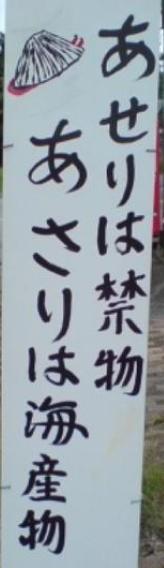 あせりは禁物
あさりは海産物